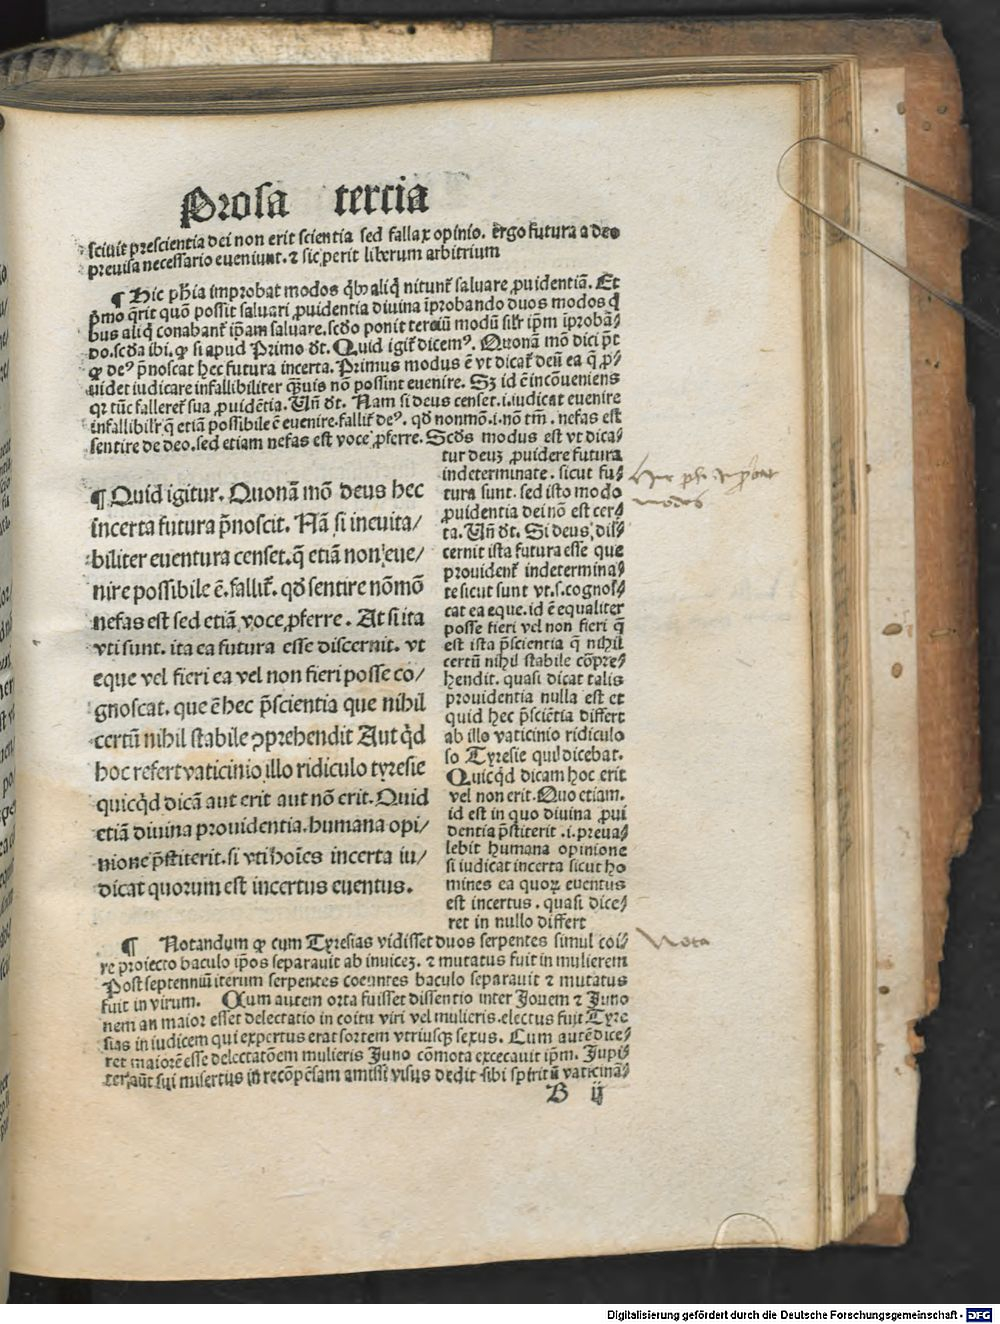 Prosa tercia
sciuit prescientia dei non erit scientia sed fallax opinio. ergo futura a deo
preuisa necessario eueniunt. ⁊ sic perit liberum arbitrium
¶ Hic ph̄ia improbat modos q̇bꝰ aliq̇ nitunt᷑ saluare ꝓuidentiā. Et
pͥmo q̄rit quō possit saluari ꝓuidentia diuina īprobando duos modos q̇
bus aliq̇ conabant᷑ ip̄am saluare. scďo ponit terciū modū silr̄ ip̄m īprobā⸗
do. scďa ibi. ꝙ si apud Primo ďt. Quid igit᷑ dicemꝰ. Quonā mō dici pt̄
ꝙ deꝰ p̄noscat hec futura incerta. Primus modus ē vt dicat᷑ deū ea q̄ ꝓ⸗
uidet iudicare infallibiliter q̄uis nō possint euenire. Sꝫ id ē incōueniens
qꝛ tūc falleret᷑ sua ꝓuidētia. Vn̄ ďt. Nam si deus censet .i. iudicat euenire
infallibilr̄ q̄ etiā possibile ē euenire. fallit᷑ deꝰ. qď nonmō .i. nō tm̄ . nefas est
sentire de deo. sed etiam nefas est voce ꝓferre. Scďs modus est vt dica⸗
tur deuꝫ ꝓuidere futura
indeterminate . sicut fu⸗
tura sunt. sed isto modo
ꝓuidentia dei nō est cer⸗
ta. Vn̄ ďt. Si deus dis⸗
cernit ista futura esse que
prouident᷑ indetermina⸗
te sicut sunt vt .s. cognos⸗
cat ea eque. id ē equaliter
posse fieri vel non fieri q̄
est ista p̄scientia q̄ nihil
certū nihil stabile cōpre⸗
hendit. quasi dicat talis
prouidentia nulla est et
quid hec p̄sciētia differt
ab illo vaticinio ridiculo
so Tyresie qui dicebat.
Quicq̇d dicam hoc erit
vel non erit. Quo etiam.
id est in quo diuina ꝓui
dentia p̄stiterit .i. preua⸗
lebit humana opinione
si iudicat incerta sicut ho
mines ea quoꝝ euentus
est incertus . quasi dice⸗
ret in nullo differt
¶ Quid igitur. Quonā mō deus hec
incerta futura p̄noscit. Nā si ineuita/
biliter euentura censet. q̄ etiā non eue/
nire possibile ē. fallit᷑. qď sentire nōmō
nefas est sed etiā voce ꝓferre . At si ita
vti sunt. ita ea futura esse discernit. vt
eque vel fieri ea vel non fieri posse co/
gnoscat. que ē hec p̄scientia que nihil
certū nihil stabile ꝯprehendit Aut q̇d
hoc refert vaticinio illo ridiculo tyresie
quicq̇d dicā aut erit aut nō erit. Quid
etiā diuina prouidentia. humana opi/
nione p̄stiterit. si vti hoīes incerta iu/
dicat quorum est incertus euentus.
¶ Notandum ꝙ cum Tyresias vidisset duos serpentes simul coi⸗
re proiecto baculo ip̄os separauit ab inuiceꝫ. ⁊ mutatus fuit in mulierem
Post septenniū iterum serpentes coeuntes baculo separauit ⁊ mutatus
fuit in virum. Cum autem orta fuisset dissentio inter Jouem ⁊ Juno
nem an maior esset delectatio in coitu viri vel mulieris. electus fuit Tyre
sias in iudicem qui expertus erat sortem vtriusqꝫ sexus. Cum autē dice⸗
ret maiorē esse delectatōem mulieris Juno cōmota excecauit ip̄m. Jupi⸗
ter aūt sui misertus in recōpēsam amissi visus dedit sibi spiritū vaticinā⸗
B ij
modos
Nota
Digitalisierung gefördert durch die Deutsche Forschungsgemeinschaft - DFG